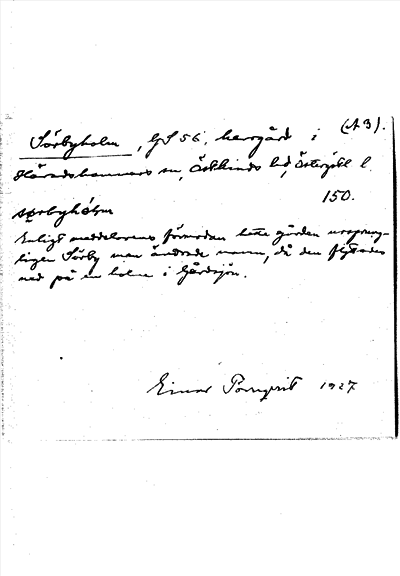 (A 3).
Sörbyholm, GS 56, herrgård i
Häradshammars sn, Östkinds hd, Östergötl l.
150.
sørbyhólm
Enligt meddelarens förmodan hette gården ursprung-
ligen Sörby men ändrade namn, då den flyttades
ned på en holme i Gårdsjön.
Einar Törnqvist 1927